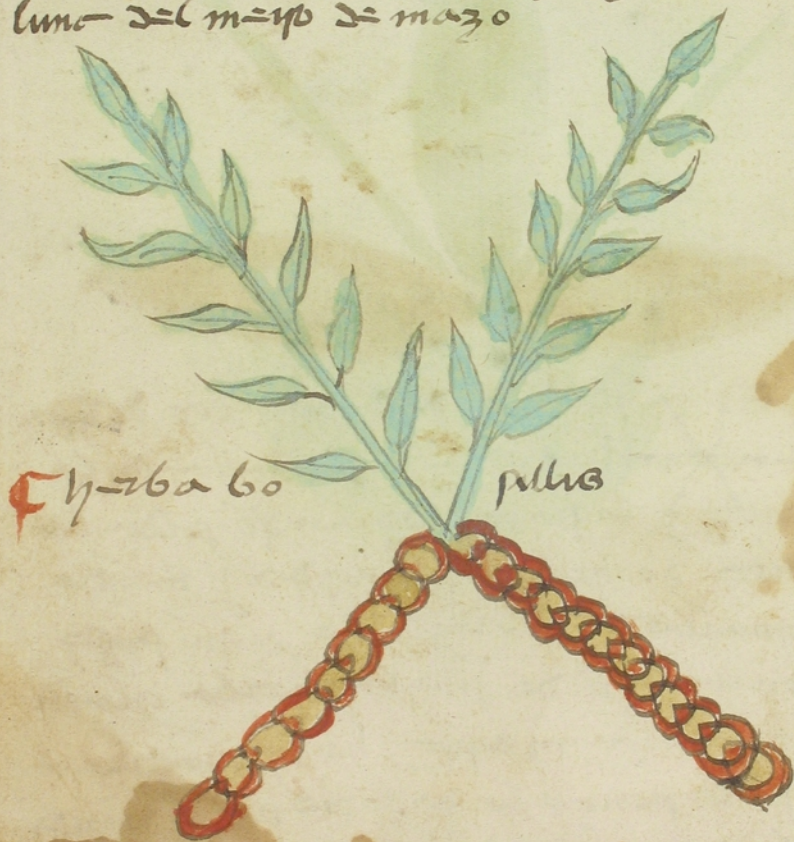 luna del meso de mazo
herba bo pillis